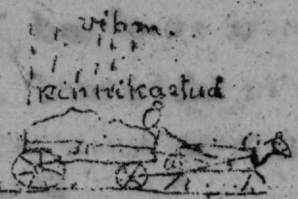 vihm.
kinnikaetud